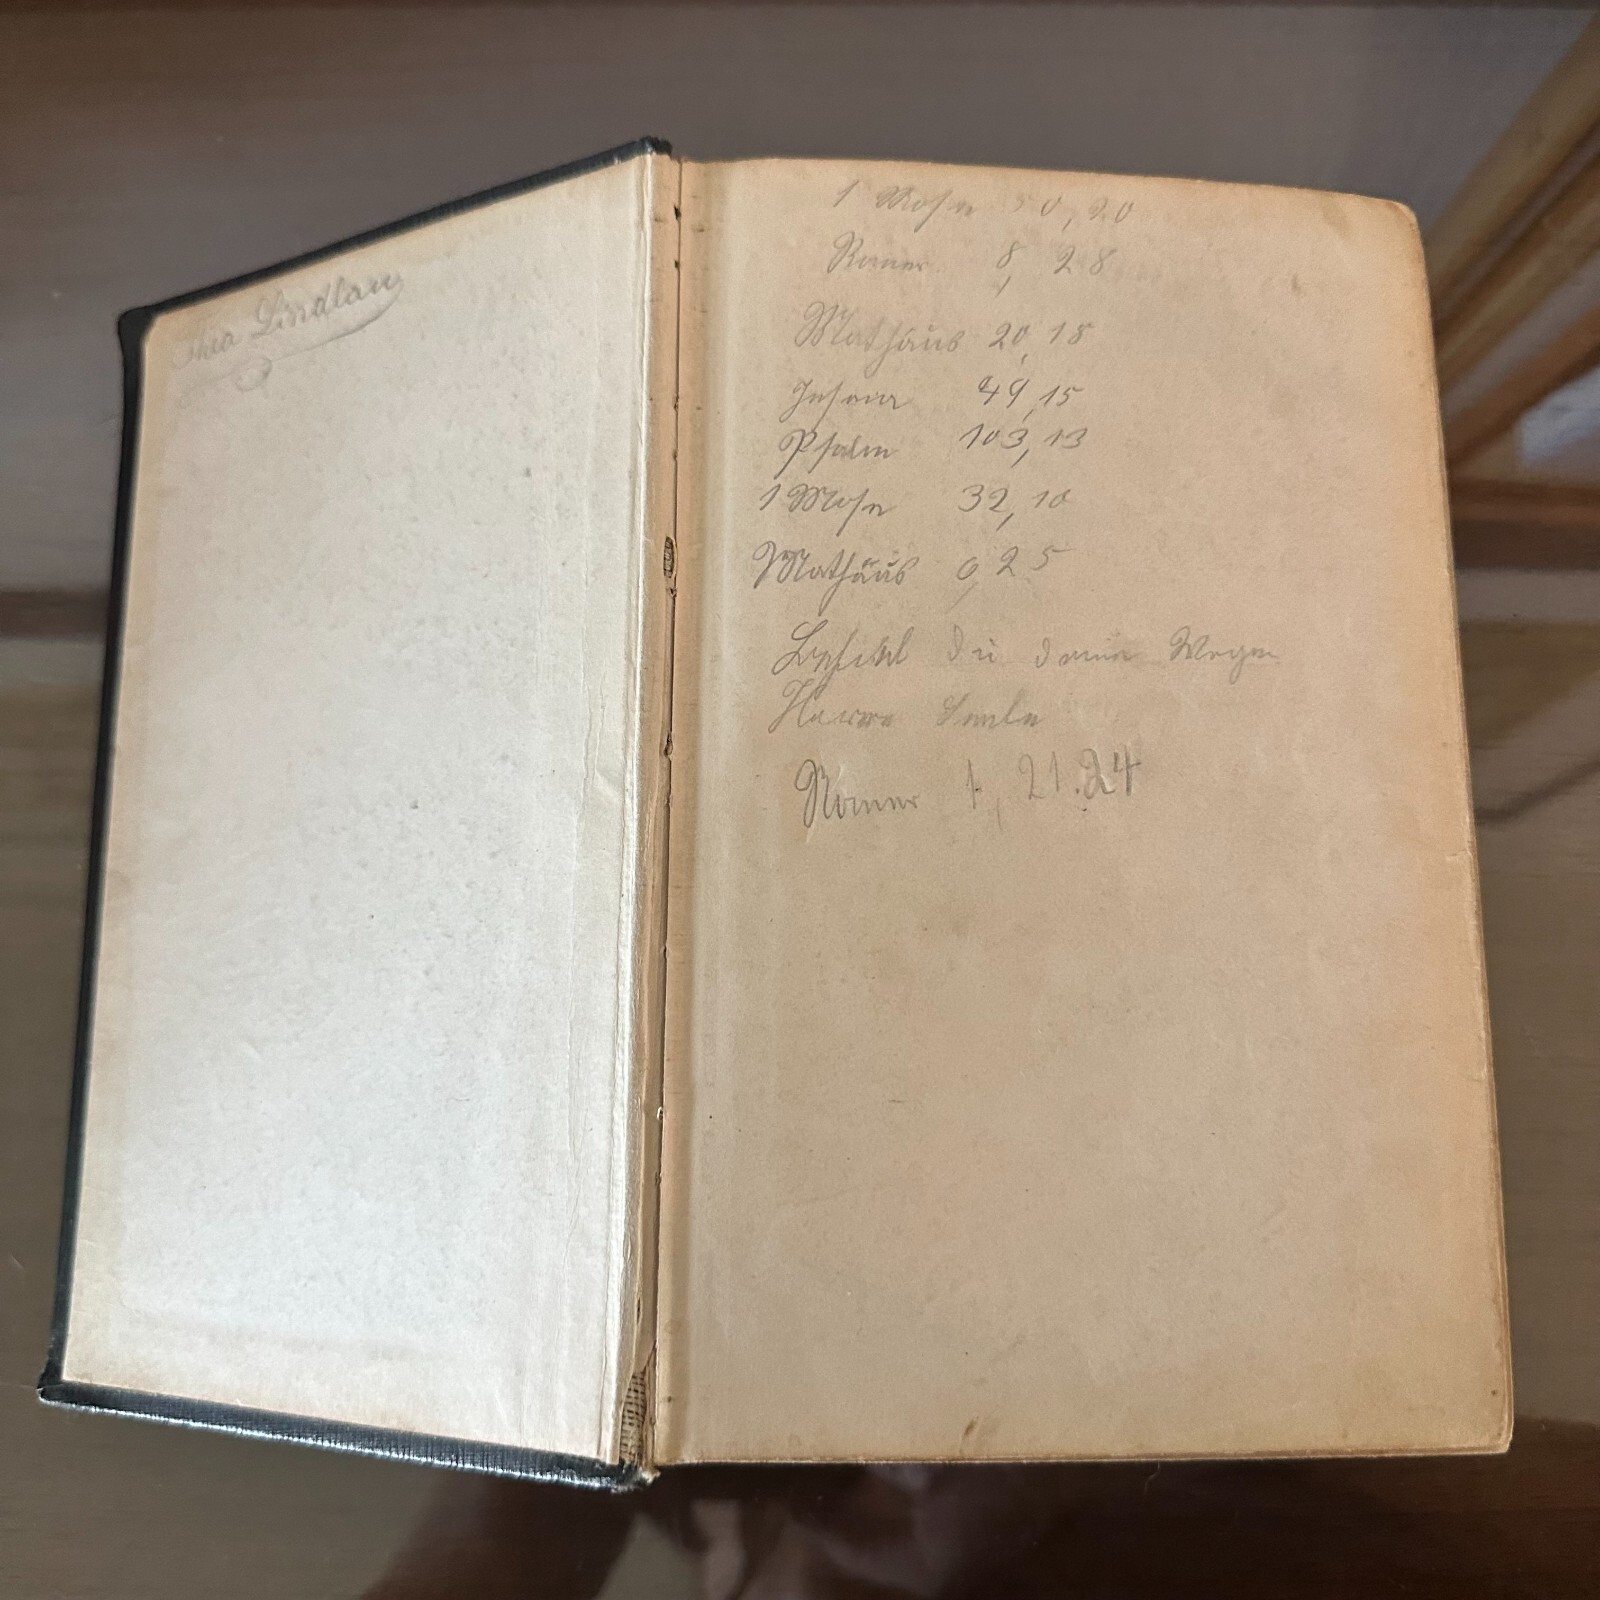 Thea Lindlau
1 Mose 50, 20
Römer 8, 28
Mathäus 20, 15
Jesaia 49, 15
Psalm 103, 13
1 Mose 32, 10
Mathäus 6, 25
Befiehl du deine Wege
Harre Seele
Römer 1, 21.24